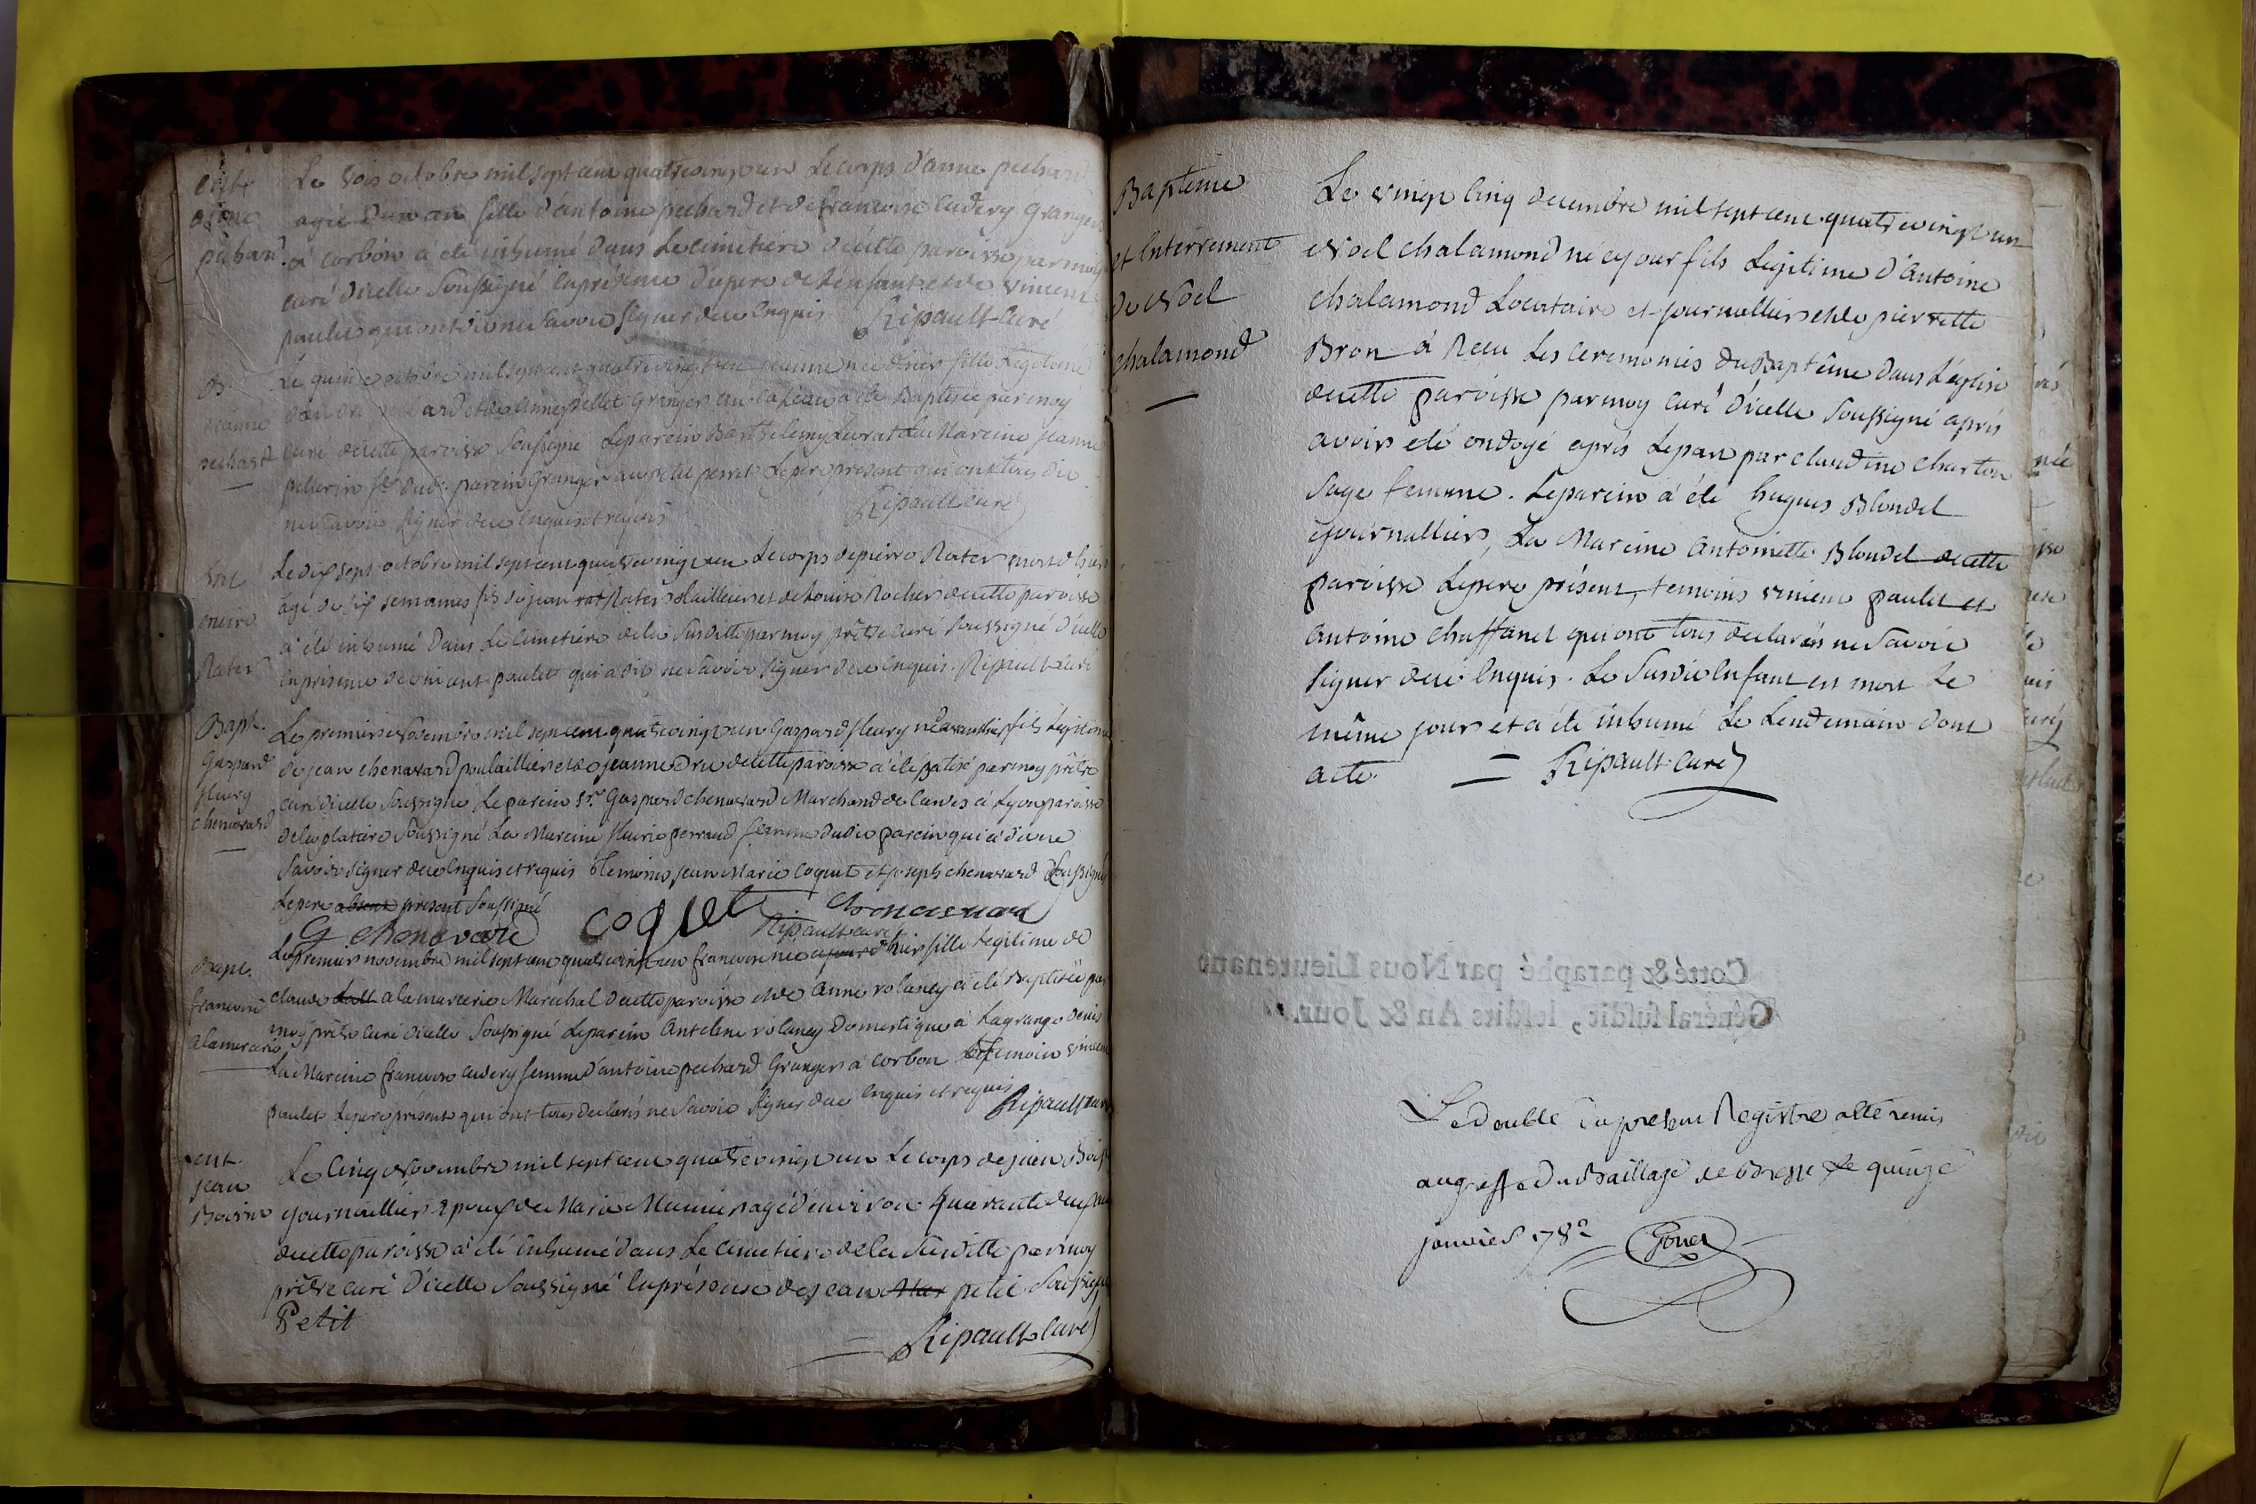 Le trois octobre mil sept cent quatrevingt un Le corps d'anne pechard
agée d'un an fille d'antoine pechard et de francoise cadery Granger
à corbon a été inhumé dans Le cimetiere decette paroisse par moy
curé d'icelle soussigné en présence du pere de l'enfant et de vincent
paulet qui ont dit ne savoir signer de ce enquis Ripault curé
ent
anne
pechard
Le quinze octobre mil sept cent quatrevingt un jeanne née d'hier fille Legitime
pechard et de anne Granger a été Baptisée par moy
curé decette paroisse soussigné Le parein Barthelemy La Mareine jeanne
parein Granger Le pere présent qui ont tous dit
ne savoir signer de ce enquis et requis Ripault curé
B.
jeanne
pechard
Le dix sept octobre mil sept cent quatrevingt un Le corps de pierre Rater mort d'hier
agé de six semaines fils de jean Rater tailleur et de Louise Rocher decette paroisse
à été inhumé dans Le cimetiere de la susditte par moy prêtre curé soussigné d'icelle
en présence de vincent paulet qui a dit ne savoir signer de ce enquis. Ripault curé
Rater
Bapt.
Gaspard
fleury
chenavard
Le premier Novembre mil sept cent quatrevingt un Gaspard fleury né avanthier fils Legitime
de jean chenavard poulaillier et de jeanne Dru decette paroisse a été batisé par moy prêtre
curé d'icelle soussigné Le parein Sr. Gaspard chenavard Marchand de à Lyon paroisse
de la platiere soussigné La Mareine fleurie perraud femme dudit parein qui a dit ne
savoir signer de ce enquis et requis temoins jean Marie coquet et joseph chenavard soussignés
Le pere absent présent soussigné
G chenavard coquet chenavard
Ripault curé
Bapt.
francoise
alamercerie
Le premier novembre mil sept cent quatrevingt un francoise née d'hier fille Legitime de
claude alamercerie Maréchal decette paroisse et de anne volancy a été Baptisée par
moy prêtre curé d'icelle soussigné Le parein Antelme volancy Domestique à Lagrange
La Mareine francoise cadery femme d'antoine pechard Granger à corbon temoin vincent
paulet Le pere présent qui ont tous declarés ne savoir signer de ce enquis et requis
Ripault curé
ent
jean
Le cinq Novembre mil sept cent quatrevingt un Le corps de jean
journallier epoux de Marie Meunier agé d'environ quarante deux ans
decette paroisse a été inhumé dans Le cimetiere de la susditte par moy
prêtre curé d'icelle soussigné en présence de jean petit soussigné
Petit
Ripault curé
Baptême
et Enterrement
de Noël
chalamond
Le vingt cinq decembre mil sept cent quatrevingt un
Noël chalamond né ce jour fils Legitime d'Antoine
chalamond Locataire et journallier et de pierrette
Bron à Recu Les Ceremonies du Baptême dans L'église
decette paroisse par moy curé d'icelle soussigné aprés
avoir eté ondoyé aprés Le part par claudine charton
sage femme. Le parein à été hugues Blondel
journallier, La Mareine Antoinette Blondel decette
paroisse Le pere présent, temoins vincent paulet et
Antoine chaffanel qui ont tous declarés ne savoir
signer de ce enquis. Le susdit enfant est mort Le
même jour et a été inhumé Le Lendemain dont
acte. Ripault curé
Cotté & paraphé par Nous Lieutenant
Général susdit, lesdits An & Jour.
Le double du present Registre a été remis
au greffe du Baillage de Bresse le quinze
janvier 1782